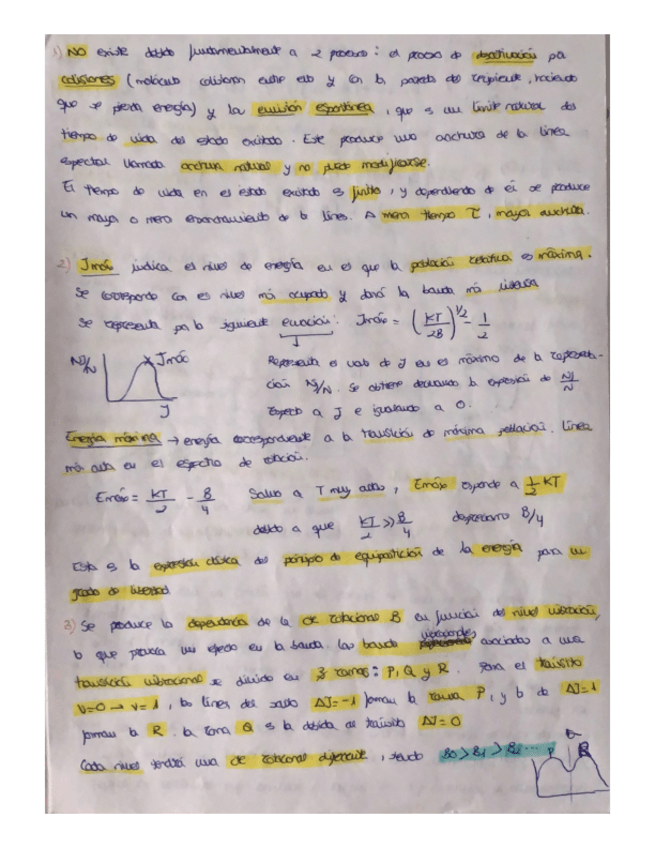 1) NO existe debido fundamentalmente a 2 procesos: el proceso de desactivación por
colisiones (moléculas colisionan entre ello y con la pared del recipiente, haciendo
que se pierda energía) y la emisión espontánea, que es un límite natural del
tiempo de vida del estado excitado. Este produce una anchura de la línea
espectral llamada anchura natural y no puede modificarse.
El tiempo de vida en el estado excitado es finito, y dependiendo de él se produce
un mayor o menor ensanchamiento de la línea. A menor tiempo τ, mayor anchura.
2) Jmáx indica el nivel de energía en el que la población relativa es máxima.
Se corresponde con el nivel más ocupado y dará la banda más intensa
Se representa por la siguiente ecuación: Jmáx = (KT/2B)^1/2 - 1/2
J
NJ/N Jmáx
J
Representa el valor de J en el máximo de la representa-
ción NJ/N. Se obtiene derivando la expresión de NJ/N
respecto a J e igualando a 0.
Energía máxima → energía correspondiente a la transición de máxima población. Línea
más alta en el espectro de rotación.
Emáx = KT/2 - B/4 Salvo a T muy altas, Emáx responde a 1/2 KT
debido a que KT/2 >> B/4 despreciamos B/4
Esta es la expresión clásica del principio de equipartición de la energía para un
grado de libertad
3) Se produce la dependencia de la cte rotacional B en función del nivel vibracional,
lo que provoca un efecto en la banda. Las bandas vibracionales asociadas a una
transición vibracional se dividen en 3 ramas: P, Q y R. Para el tránsito
V=0 → V=1, las líneas del salto ΔJ=-1 forman la rama P, y la de ΔJ=1
forman la R. La rama Q es la debida al tránsito ΔJ=0
Cada nivel tendrá una cte rotacional diferente, siendo B0 > B1 > B2 ...
P Q R